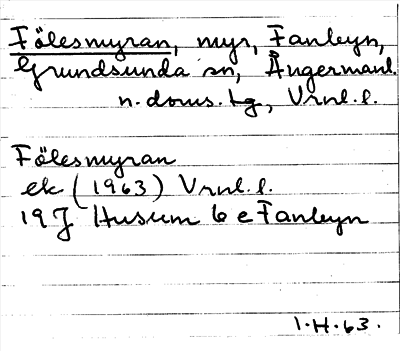 Fölesmyran, myr, Fanbyn,
Grundsunda sn, Ångermanl.
n. doms. tg, Vrnl. l.
Fölesmyran
ek (1963) Vrnl. l.
19J Husum 6 e Fanbyn
1.H.63.